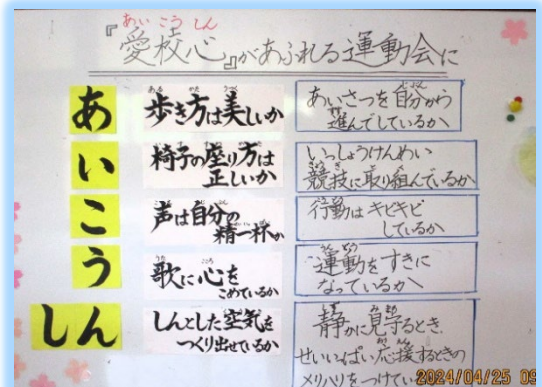 あい こう しん
『愛校心』があふれる運動会に
あ
歩き方は美しいか
あいさつを自分から
進んでしているか
い
椅子の座り方は
正しいか
いっしょうけんめい
競技に取り組んでいるか
こ
声は自分の
精一杯か
行動はキビキビ
しているか
う
歌に心を
こめているか
運動をすきに
なっているか
しん
しんとした空気を
つくり出せているか
静かに見学するとき、
せいいっぱい応援するときの
メリハリをつけてい
2024/04/25 09